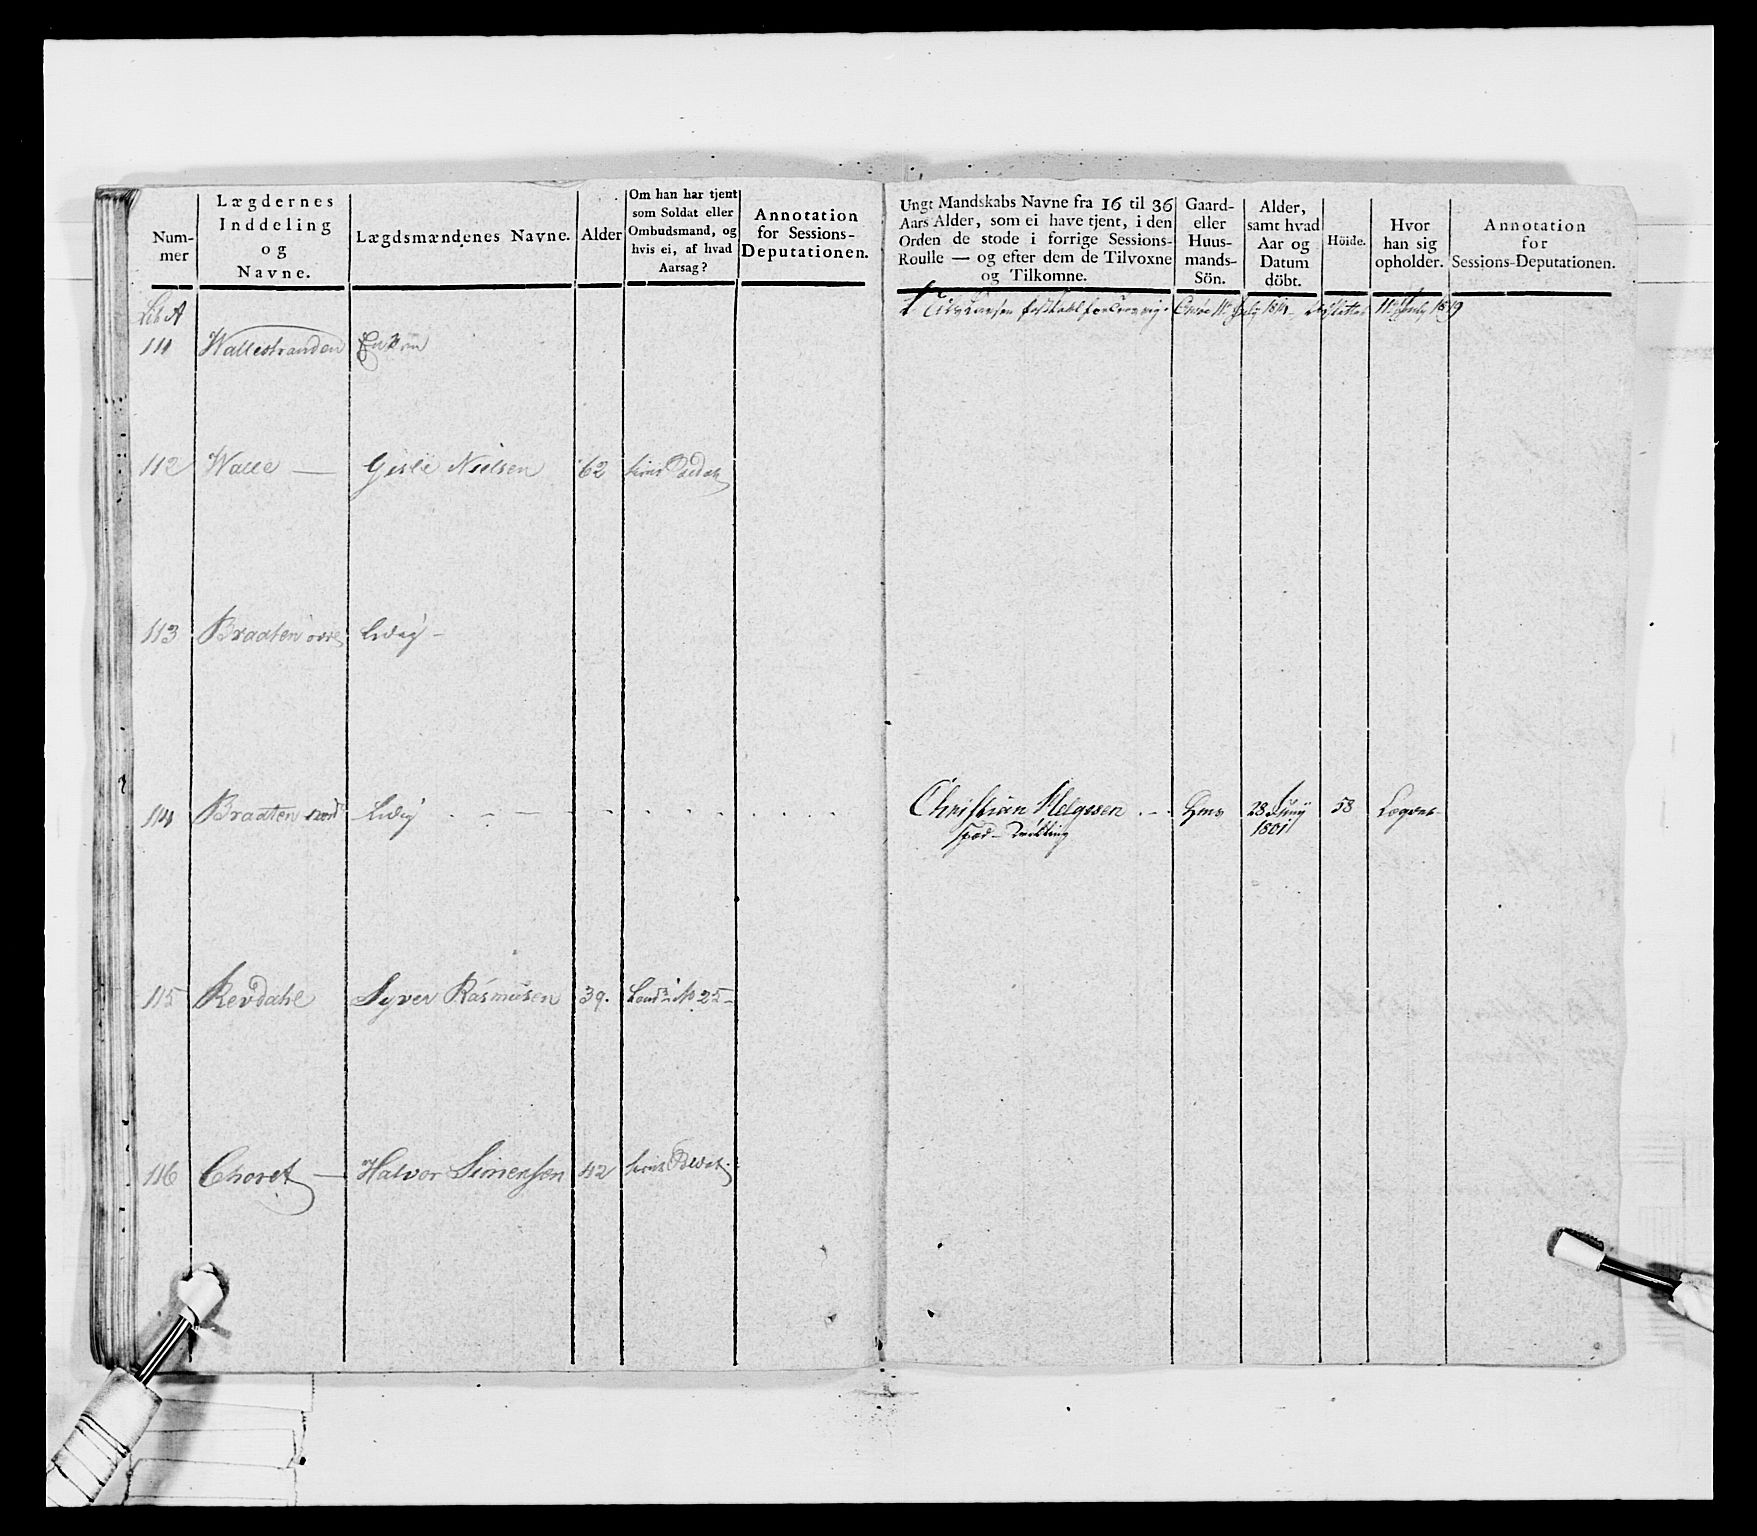 Num-
mer
Lægdernes
Inddeling
og
Navne.
Lægdsmændenes Navne.
Alder
Om han har tjent
som Soldat eller
Ombudsmand, og
hvis ei, af hvad
Aarsag?
Annotation
for Sessions-
Deputationen.
Ungt Mandskabs Navne fra 16 til 36
Aars Alder, som ei have tjent, i den
Orden de stode i forrige Sessions-
Roulle — og efter dem de Tilvoxne
og Tilkomne.
Gaard-
eller
Huus-
mands-
Sön.
Alder,
samt hvad
Aar og
Datum
döbt.
Höide.
Hvor
han sig
opholder.
Annotation
for
Sessions-Deputationen.
Lit A
111 Wallestranden Enken
11te July 1819
112 Walle — Gisle Nielsen 62
113 Braaten øvre Ledig —
114 Braaten nord Ledig Christian Helgesen Hms 28 Juny 58 Lægdet
1801
115 Revdahl Syver Rasmusen 39. No 25 —
116 Choret — Halvor Simensen 42